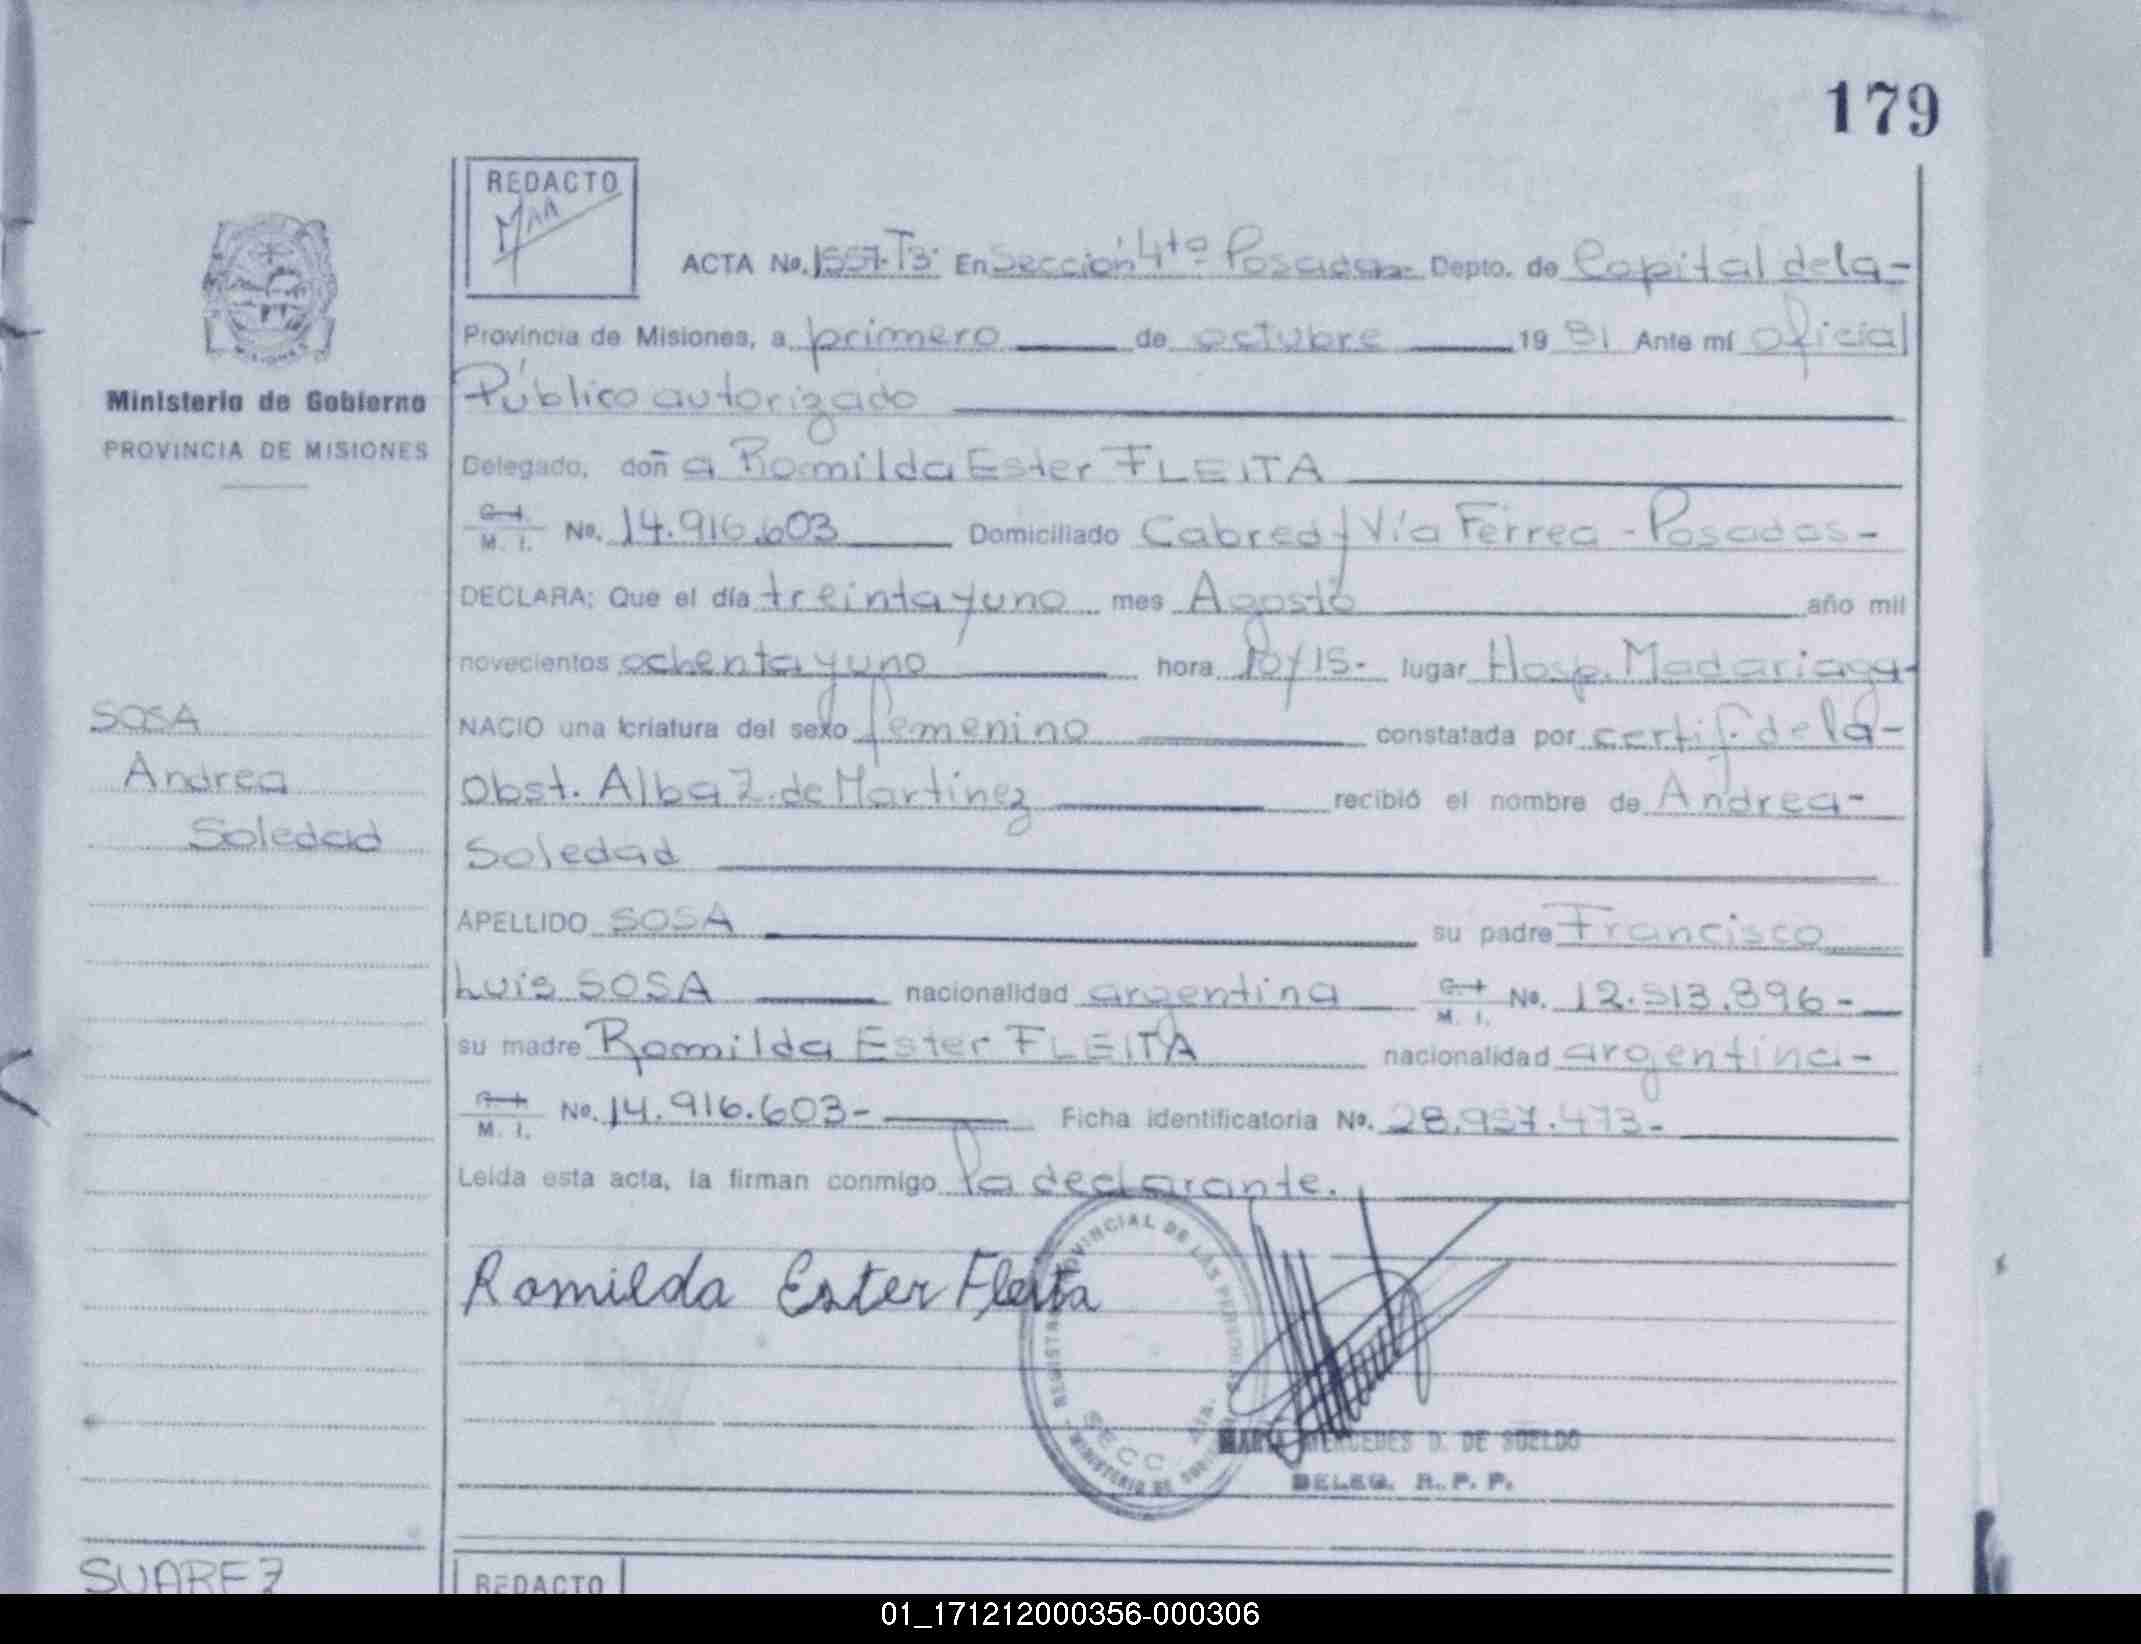 179
REDACTO
ACTA No. 1557-T3- En Sección 4ta Posadas- Depto. de Capital de la-
Provincia de Misiones, a primero de octubre 19 81 Ante mí oficial
Ministerio de Gobierno
PROVINCIA DE MISIONES
Público autorizado
Delegado, doñ a Romilda Ester FLEITA
M. I. No. 14.916.603 Domiciliado Cabred y Vía Ferrea - Posadas-
DECLARA: Que el día treinta y uno mes Agosto año mil
novecientos ochenta y uno hora 10/15- lugar Hosp. Madariaga-
SOSA
Andrea
Soledad
NACIO una criatura del sexo femenino constatada por certif. de la-
Obst. Alba Z. de Martinez recibió el nombre de Andrea-
Soledad
APELLIDO SOSA su padre Francisco
Luis SOSA nacionalidad argentina M. I. No. 12.513.896-
su madre Romilda Ester FLEITA nacionalidad argentina-
M. I. No. 14.916.603- Ficha identificatoria No. 28.957.473-
Leida esta acta, la firman conmigo la declarante.
Romilda Ester Fleita
SECC 4ta.
MERCEDES D. DE SUELDO
DELEG. R. P. P.
SUAREZ
REDACTO
01_171212000356-000306